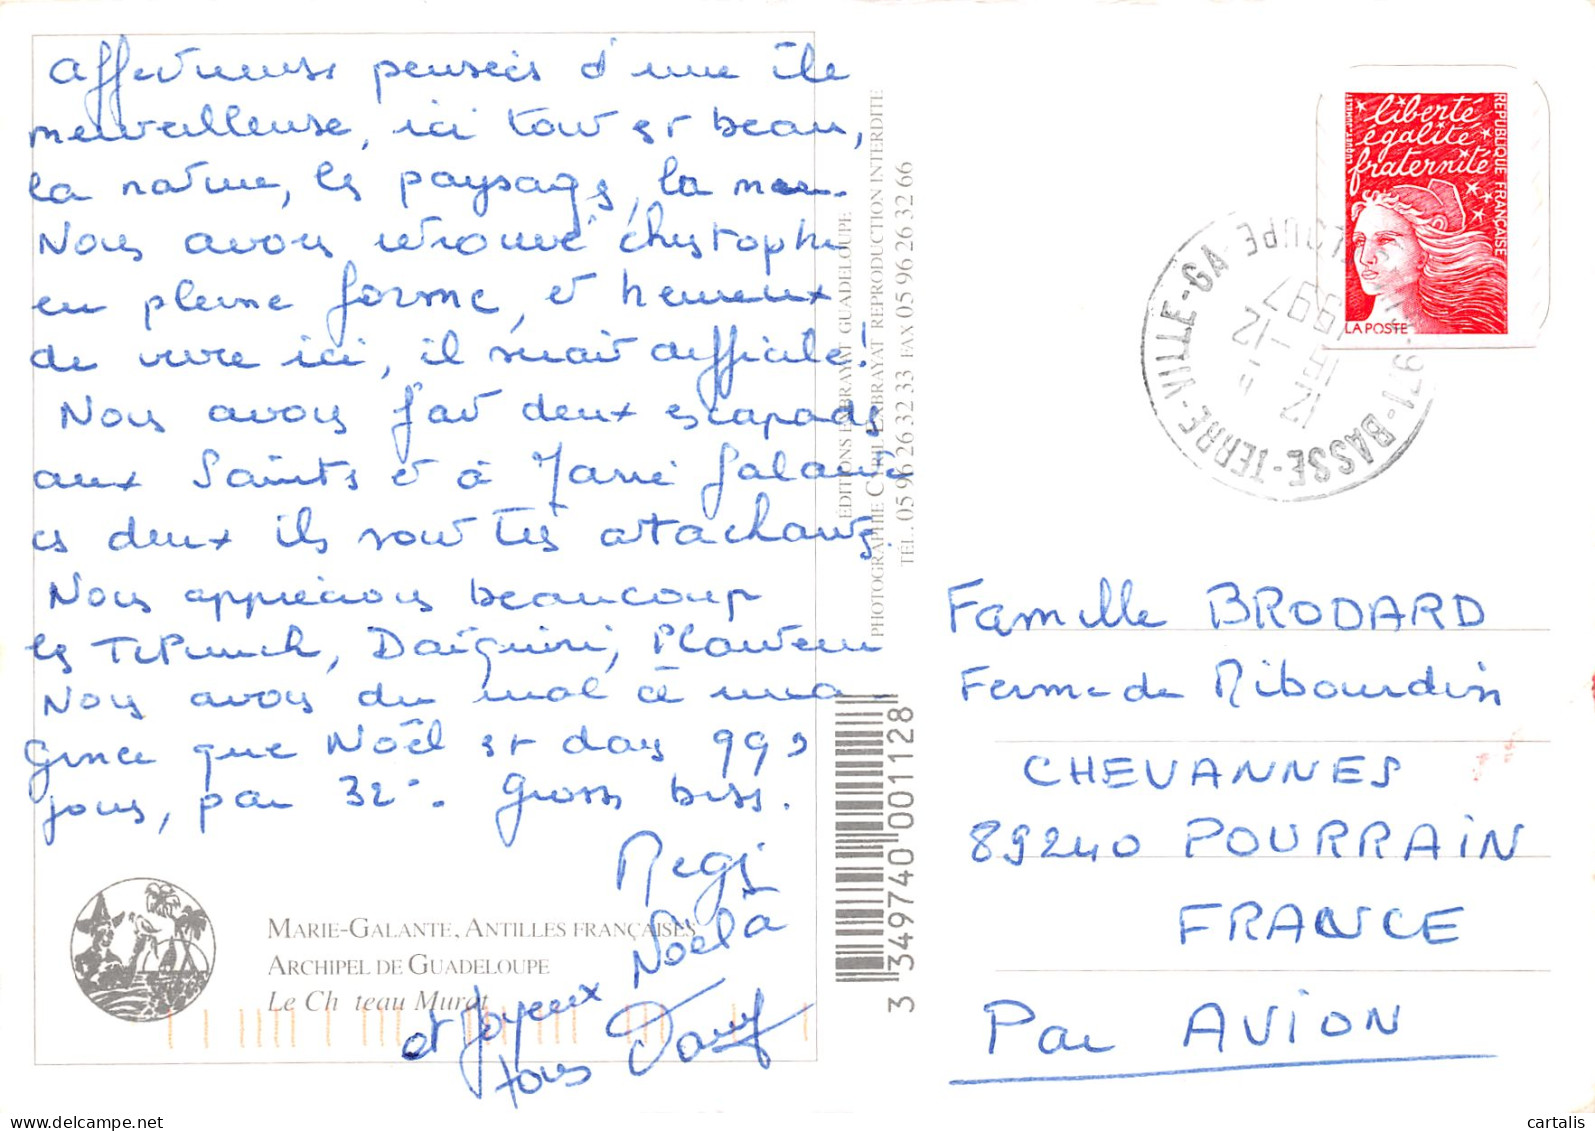 Affectueuses pensées d'une île
merveilleuse, ici tout est beau,
la nature, les paysages, la mer.
Nous avons retrouvé Christophe
en pleine forme, et heureux
de vivre ici, il serait difficile !
Nous avons fait deux escapades
aux Saints et à Marie Galante
ces deux îls sont très attachants
Nous apprécions beaucoup
les Ti Punch, Daïquiri, Planteur
Nous avons du mal à
que Noël est dans 9
jours, par 32°. Gross biss.
Regis
et Joyeux Noël à
tous
MARIE-GALANTE, ANTILLES FRANÇAISES
ARCHIPEL DE GUADELOUPE
Le Ch teau Murat
EDITIONS EXBRAYAT GUADELOUPE
PHOTOGRAPHIE CYRIL EXBRAYAT REPRODUCTION INTERDITE
TÉL. 05 96 26 32 33 FAX 05 96 26 32 66
3 349740 001128
liberté
égalité
fraternité
RÉPUBLIQUE FRANÇAISE
LUQUET-JUMELET
LA POSTE
971-BASSE-TERRE-VILLE-GA
GUADELOUPE
12 H
-12
1997
Famille BRODARD
Ferme de Ribourdin
CHEVANNES
89240 POURRAIN
FRANCE
Par AVION
cartalis
delcampe.net